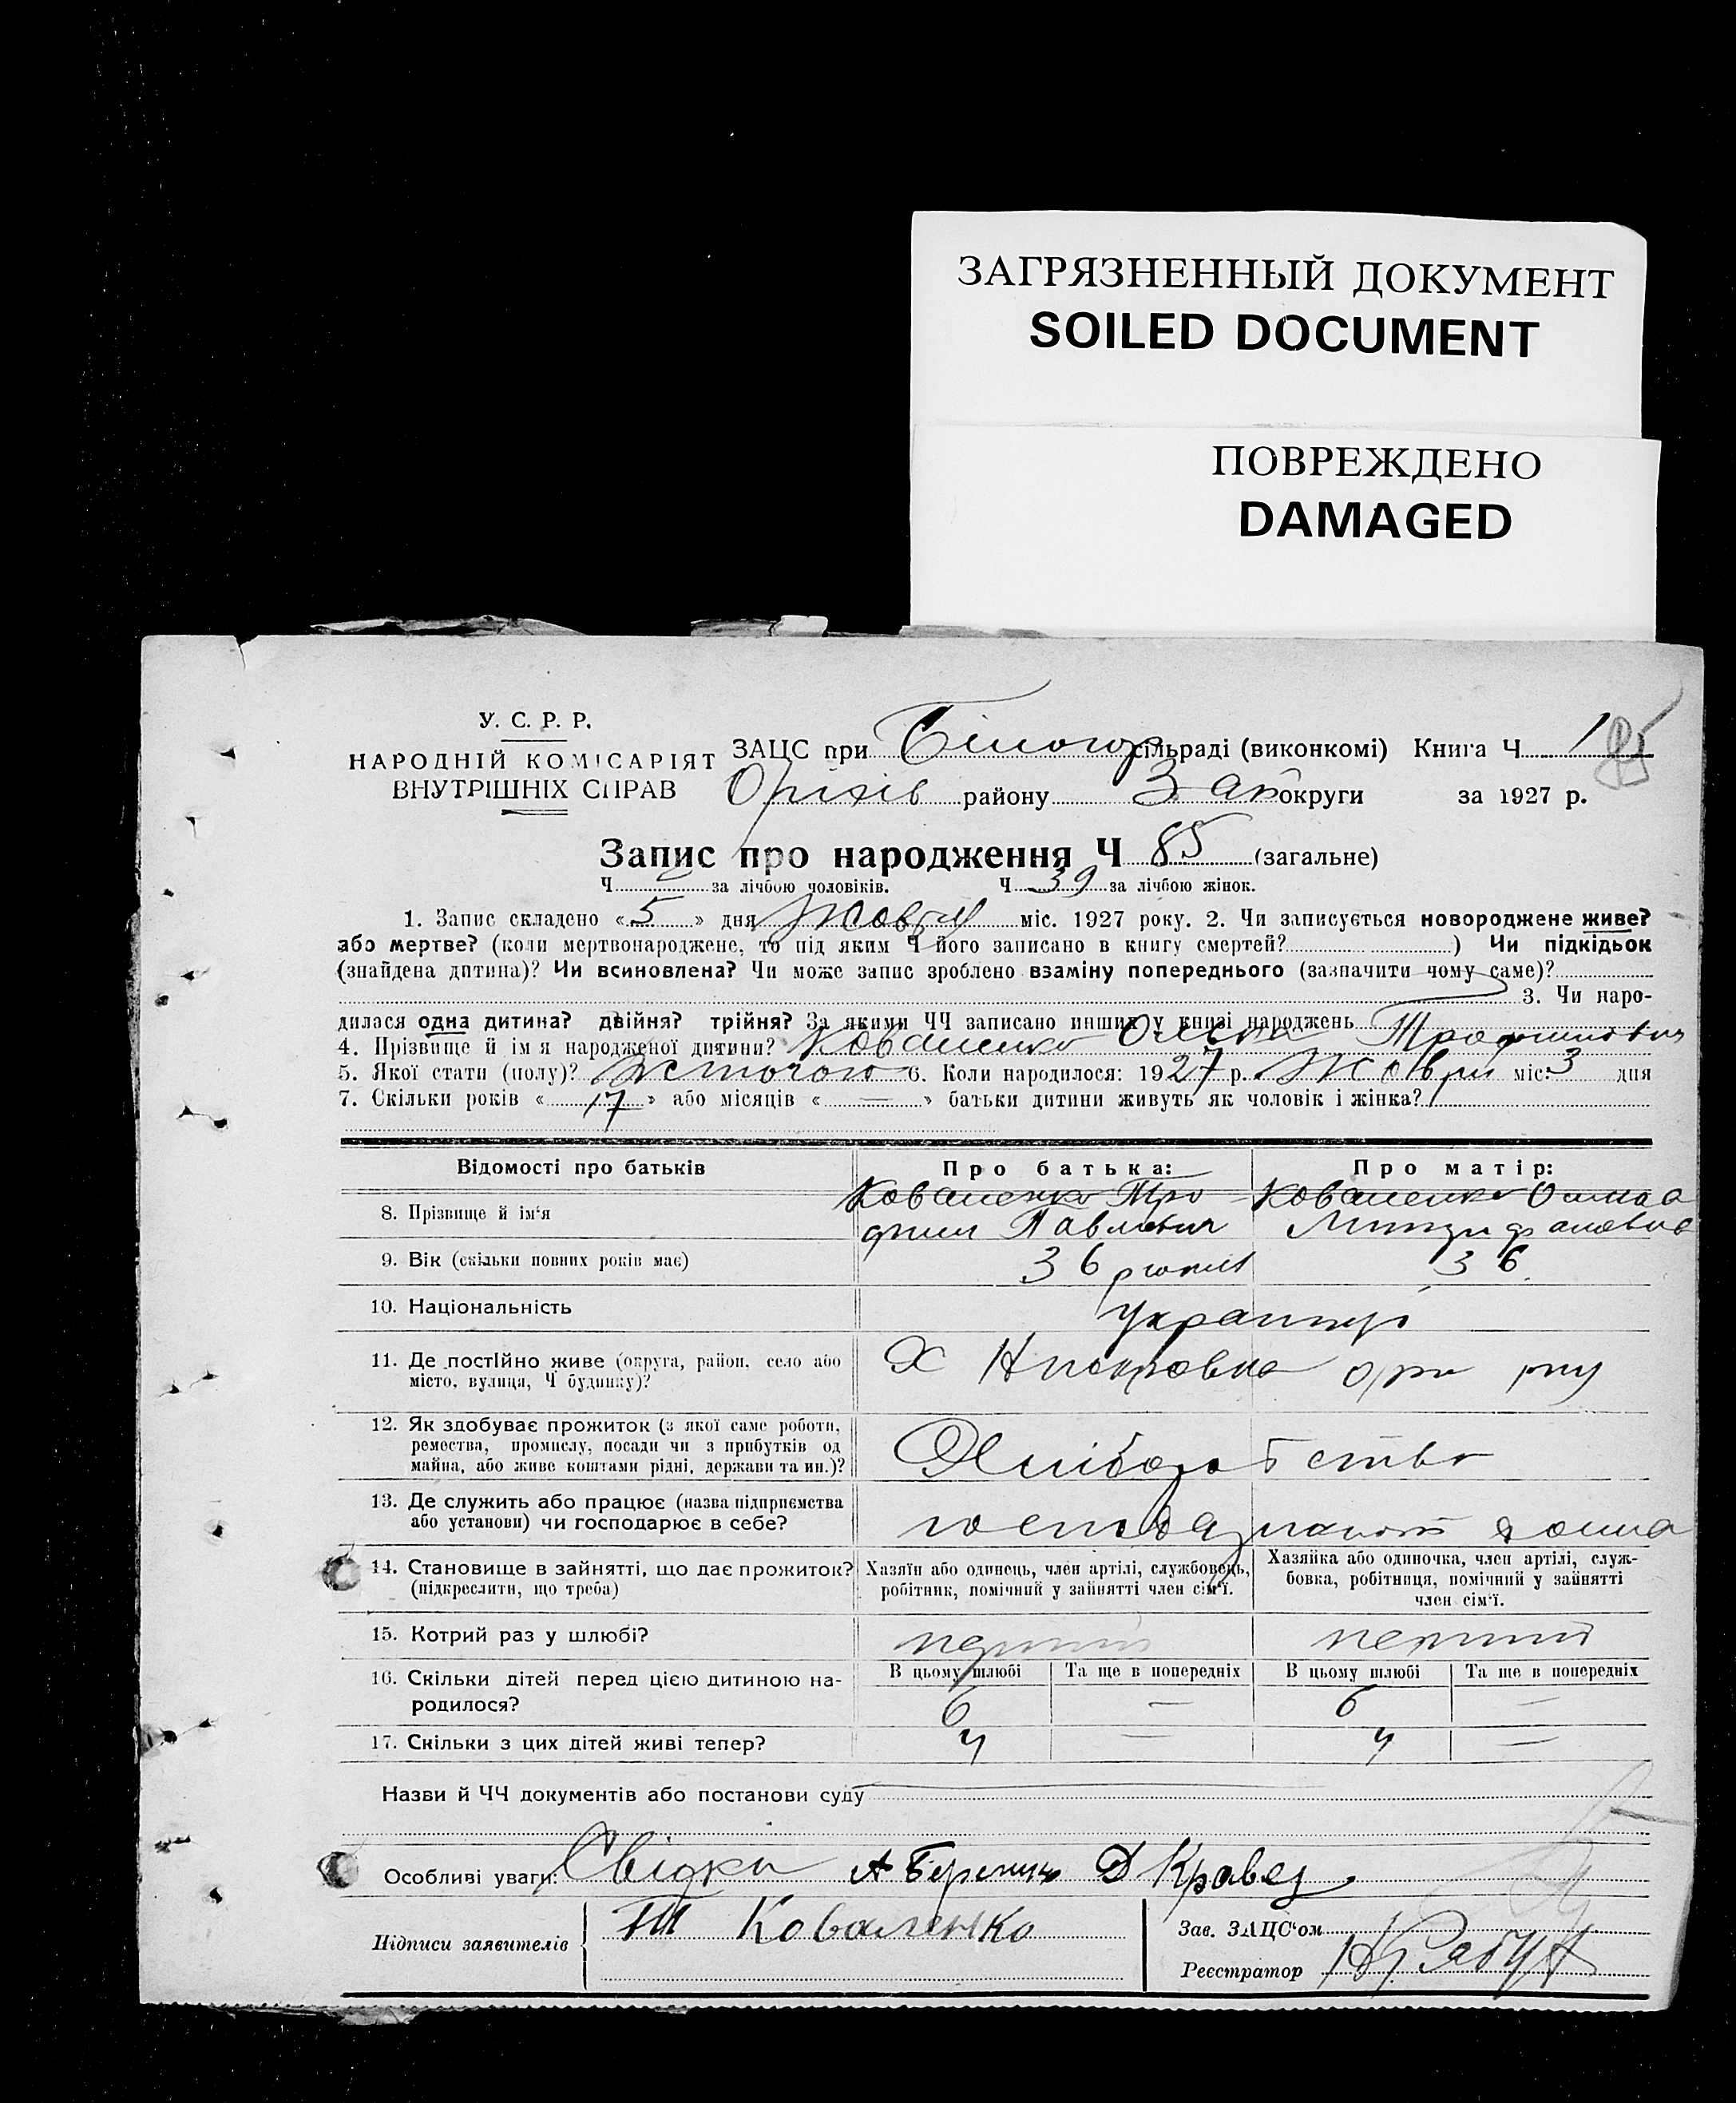 ЗАГРЯЗНЕННЫЙ ДОКУМЕНТ
SOILED DOCUMENT
ПОВРЕЖДЕНО
DAMAGED
У. С. Р. Р.
НАРОДНІЙ КОМІСАРІЯТ
ВНУТРІШНІХ СПРАВ
ЗАЦС при Білогор сільраді (виконкомі) Книга Ч 1 85
Оріхів району Зап округи за 1927 р.
Запис про народження Ч 85 (загальне)
Ч за лічбою чоловіків. Ч 39 за лічбою жінок.
1. Запис складено «5» дня Жовтня міс. 1927 року. 2. Чи записується новороджене живе?
або мертве? (коли мертвонароджене, то під яким Ч його записано в книгу смертей? ) Чи підкідьок
(знайдена дитина)? Чи всиновлена? Чи може запис зроблено взаміну попереднього (зазначити чому саме)?
3. Чи наро-
дилася одна дитина? двійня? трійня? За якими ЧЧ записано инших у книзі народжень
4. Прізвище й імя народженої дитини? Коваленко Ольга Трофимовна
5. Якої стати (полу)? Жіночого 6. Коли народилося: 1927 р. Жовтня міс. 3 дня
7. Скільки років «17» або місяців « — » батьки дитини живуть як чоловік і жінка?
Відомості про батьків Про батька: Про матір:
8. Прізвище й ім'я Коваленко Тро Коваленко
фим Павлович
9. Вік (скільки повних років має) 36 років 36
10. Національність Українці
11. Де постійно живе (округа, район, село або Х
місто, вулиця, Ч будинку)?
12. Як здобуває прожиток (з якої саме роботи,
ремества, промислу, посади чи з прибутків од Хліборобство
майна, або живе коштами рідні, держави та ин.)?
13. Де служить або працює (назва підприємства
або установи) чи господарює в себе?
14. Становище в зайнятті, що дає прожиток? Хазяїн або одинець, член артілі, службовець, Хазяйка або одиночка, член артілі, служ-
(підкреслити, що треба) робітник, помічний у зайнятті член сім'ї. бовка, робітниця, помічний у зайнятті
член сім'ї.
15. Котрий раз у шлюбі? перший перший
16. Скільки дітей перед цією дитиною на- В цьому шлюбі Та ще в попередніх В цьому шлюбі Та ще в попередніх
родилося? 6 — 6 —
17. Скільки з цих дітей живі тепер? 4 — 4 —
Назви й ЧЧ документів або постанови суду
Особливі уваги: Свідки А Д Кравец
Підписи заявителів Т Коваленко
Зав. ЗАЦС'ом
Реєстратор